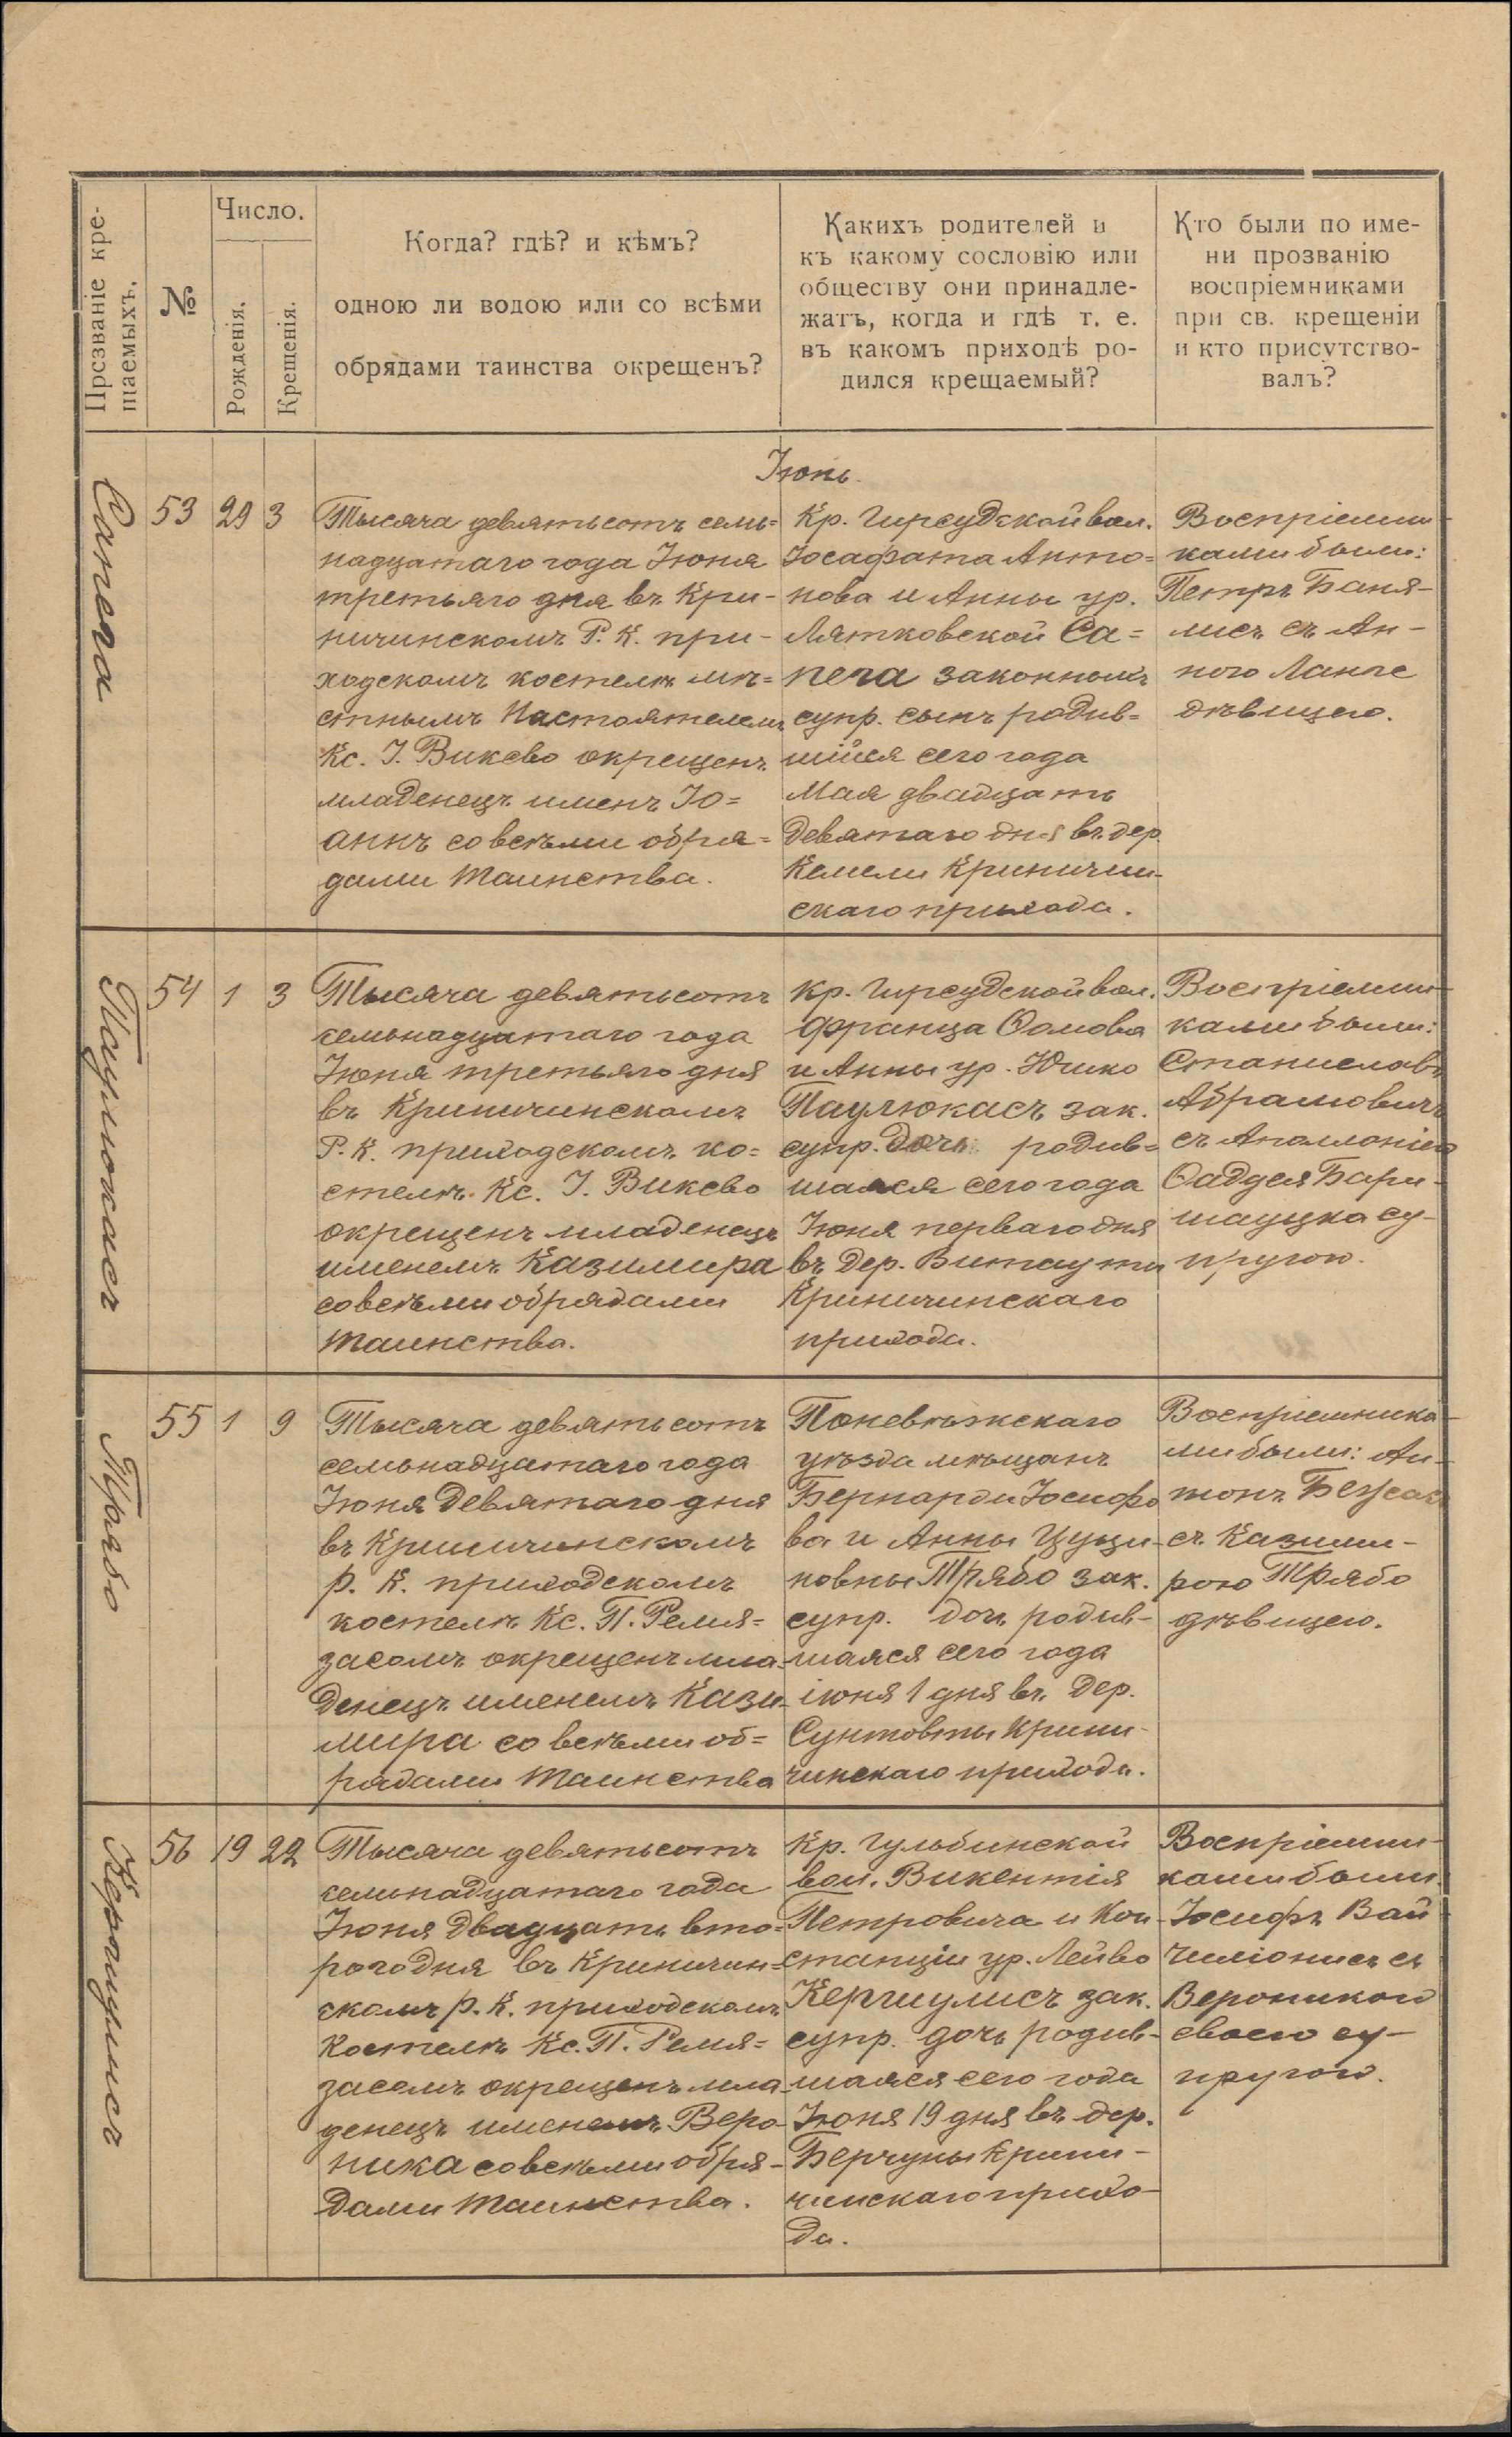 Прозваніе кре-
щаемыхъ.
№
Число.
Рожденія.
Крещенія.
Когда? гдѣ? и кѣмъ?
одною ли водою или со всѣми
обрядами таинства окрещенъ?
Какихъ родителей и
къ какому сословію или
обществу они принадле-
жатъ, когда и гдѣ т. е.
въ какомъ приходѣ ро-
дился крещаемый?
Кто были по име-
ни прозванію
воспріемниками
при св. крещеніи
и кто присутство-
валъ?
Іюнь
Сапега
53 29 3
Тысяча девятьсотъ семь=
надцатаго года Іюня
третьяго дня въ Кри-
ничинскомъ Р. К. при-
ходскомъ костелѣ мѣ=
стнымъ Настоятелемъ
Кс. І. Виксво окрещенъ
младенецъ именъ Іо=
аннъ со всѣми обря=
дами таинства.
Кр. Гирсудской вол.
Іосафата Анто=
нова и Анны ур.
Лятковской Са=
пега законныхъ
супр. сынъ родив=
шійся сего года
Мая двадцать
девятаго дня въ дер.
Кемели Криничин-
скаго прихода.
Воспріемни-
ками были:
Петръ Баня-
лисъ съ Ан-
ною Лангс
дѣвицею.
Паулюкасъ
54 1 3
Тысяча девятьсотъ
семьнадцатаго года
Іюня третьяго дня
въ Криничинскомъ
Р. К. приходскомъ ко=
стелѣ Кс. І. Виксво
окрещенъ младенецъ
именемъ Казимира
со всѣми обрядами
таинства.
Кр. Гирсудской вол.
Франца Ѳомова
и Анны ур. Юшко
Паулюкасъ зак.
супр. дочь родив=
шаяся сего года
Іюня перваго дня
въ дер. Витауты
Криничинскаго
прихода.
Воспріемни-
ками были:
Станиславъ
Абрамовичъ
съ Аполлоніею
Ѳаддея Бари-
шауцка су-
пругою.
Трябо
55 1 9
Тысяча девятьсотъ
семьнадцатаго года
Іюня девятаго дня
въ Криничинскомъ
р. К. приходскомъ
костелѣ Кс. П. Ремя=
засомъ окрещенъ мла-
денецъ именемъ Кази-
мира со всѣми об=
рядами таинства
Поневѣжскаго
уѣзда мѣщанъ
Бернарда Іосифо
ва и Анны Цуци-
новны Трябо зак.
супр. дочь родив-
шаяся сего года
іюня 1 дня въ дер.
Сунтовты Крини-
чинскаго прихода.
Воспріемника-
ми были: Ан-
тонъ
съ Казими-
рою Трябо
дѣвицею.
Кергиулисъ
56 19 22
Тысяча девятьсотъ
семьнадцатаго года
Іюня двадцать вто=
рого дня въ Криничин=
скомъ р. К. приходскомъ
костелѣ Кс. П. Ремя=
засомъ окрещенъ мла-
денецъ именемъ Веро-
ника со всѣми обря-
дами таинства.
Кр. Гульбинской
вол. Викентія
Петровича и Кон-
станціи ур. Лейво
Кергиулисъ зак.
супр. дочь родив-
шаяся сего года
Іюня 19 дня въ дер.
Берчуны Крини-
чинскаго прихо-
да.
Воспріемни-
ками были
Іосифъ Вай
чиліонисъ съ
Вероникою
своею су-
пругою.